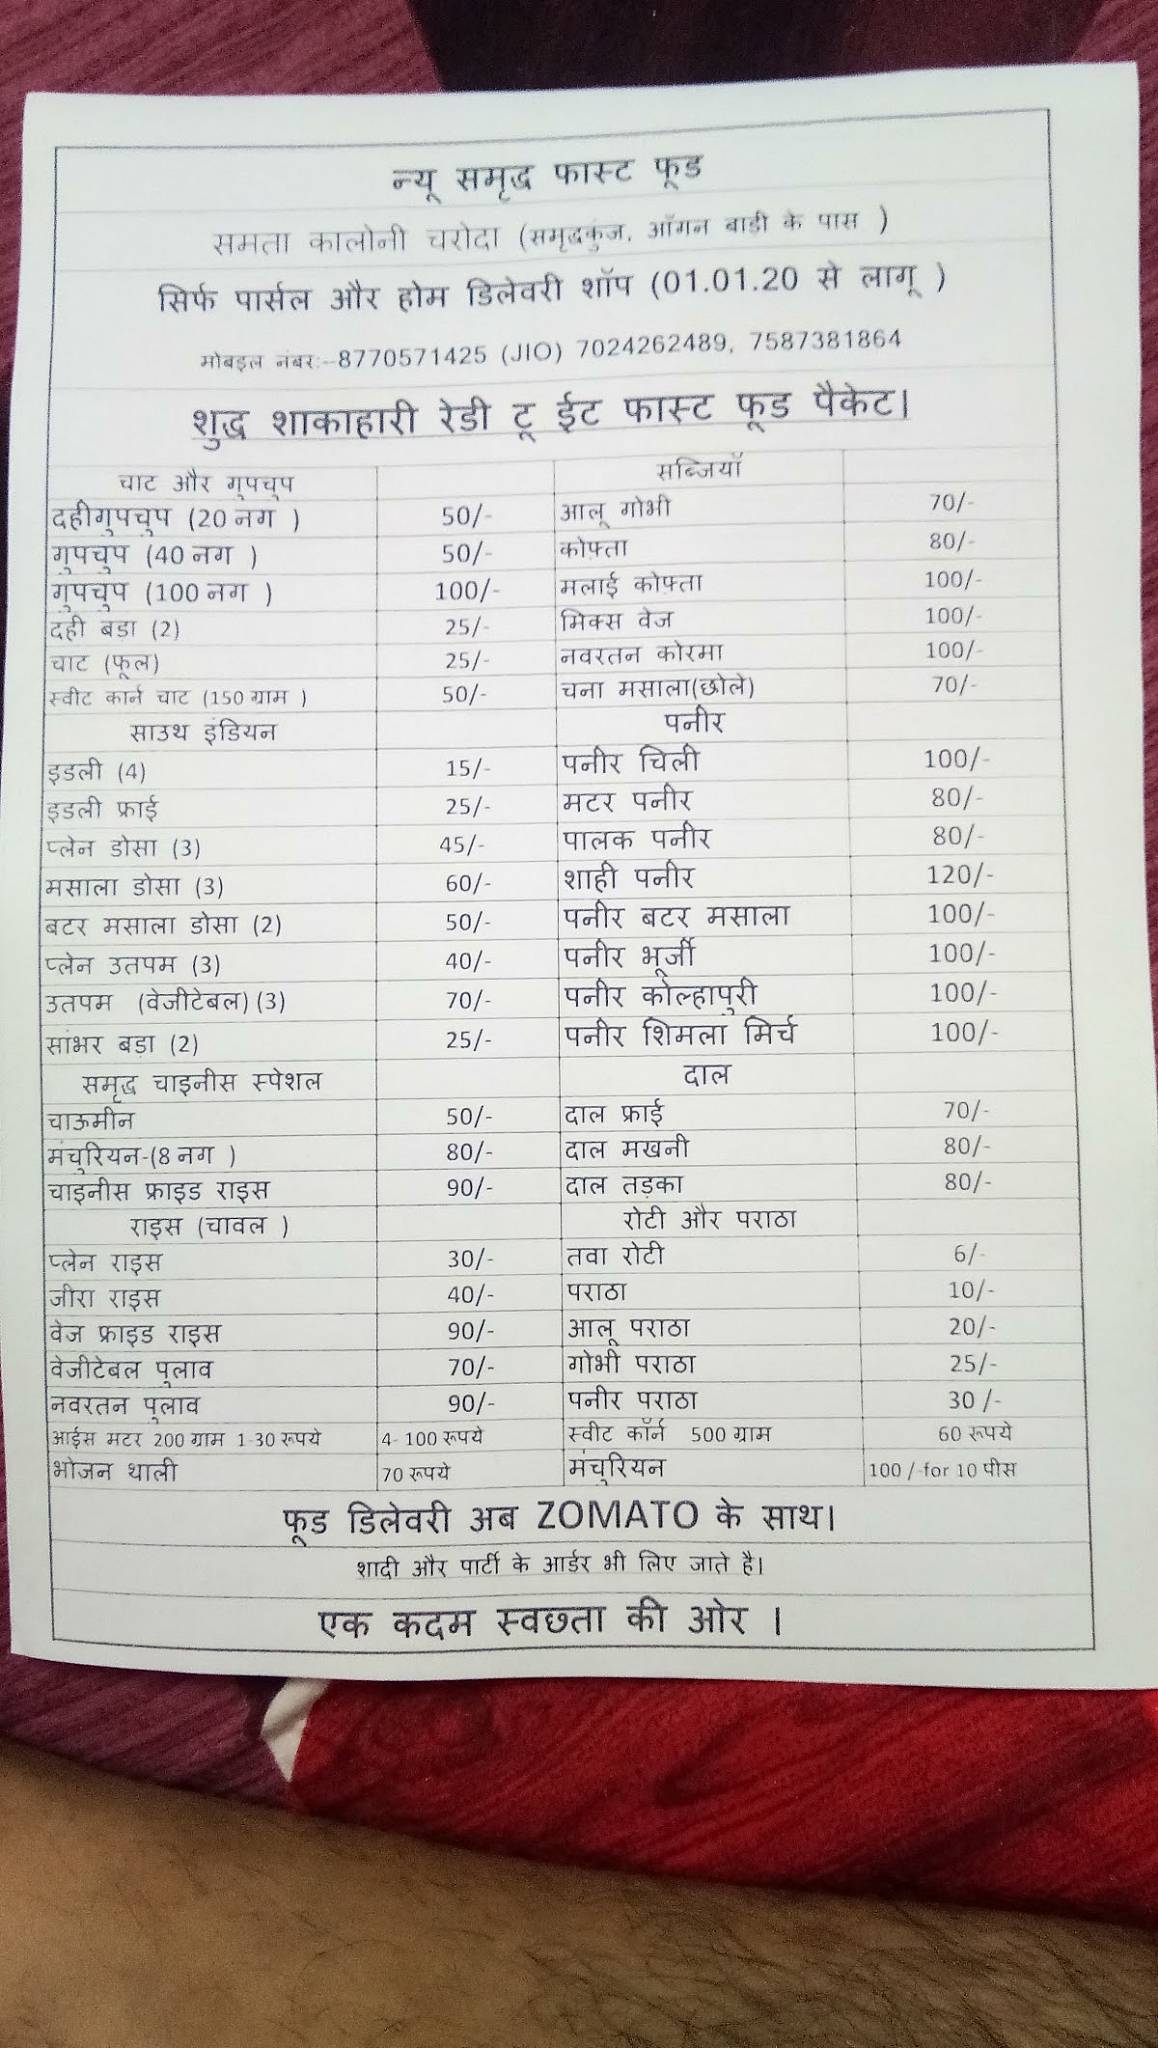 न्यू समृद्ध फास्ट फूड
समता कालोनी चरोदा (समृद्धकुंज, ऑगन बाडी के पास )
सिर्फ पार्सल और होम डिलेवरी शॉप (01.01.20 से लागू )
मोबइल नंबर:–8770571425 (JIO) 7024262489, 7587381864
शुद्ध शाकाहारी रेडी टू ईट फास्ट फूड पैकेट।
चाट और गुपचुप सब्जियॉ
दहीगुपचुप (20 नग ) 50/- आलू गोभी 70/-
गुपचुप (40 नग ) 50/- कोफ़्ता 80/-
गुपचुप (100 नग ) 100/- मलाई कोफ़्ता 100/-
दही बड़ा (2) 25/- मिक्स वेज 100/-
चाट (फूल) 25/- नवरतन कोरमा 100/-
स्वीट कार्न चाट (150 ग्राम ) 50/- चना मसाला(छोले) 70/-
साउथ इंडियन पनीर
इडली (4) 15/- पनीर चिली 100/-
इडली फ्राई 25/- मटर पनीर 80/-
प्लेन डोसा (3) 45/- पालक पनीर 80/-
मसाला डोसा (3) 60/- शाही पनीर 120/-
बटर मसाला डोसा (2) 50/- पनीर बटर मसाला 100/-
प्लेन उतपम (3) 40/- पनीर भूर्जी 100/-
उतपम (वेजीटेबल) (3) 70/- पनीर कोल्हापुरी 100/-
सांभर बड़ा (2) 25/- पनीर शिमला मिर्च 100/-
समृद्ध चाइनीस स्पेशल दाल
चाऊमीन 50/- दाल फ्राई 70/-
मंचुरियन-(8 नग ) 80/- दाल मखनी 80/-
चाइनीस फ्राइड राइस 90/- दाल तड़का 80/-
राइस (चावल ) रोटी और पराठा
प्लेन राइस 30/- तवा रोटी 6/-
जीरा राइस 40/- पराठा 10/-
वेज फ्राइड राइस 90/- आलू पराठा 20/-
वेजीटेबल पुलाव 70/- गोभी पराठा 25/-
नवरतन पुलाव 90/- पनीर पराठा 30 /-
आईस मटर 200 ग्राम 1-30 रूपये 4- 100 रूपये स्वीट कॉर्न 500 ग्राम 60 रूपये
भोजन थाली 70 रूपये मंचुरियन 100 /-for 10 पीस
फूड डिलेवरी अब ZOMATO के साथ।
शादी और पार्टी के आर्डर भी लिए जाते है।
एक कदम स्वछता की ओर ।